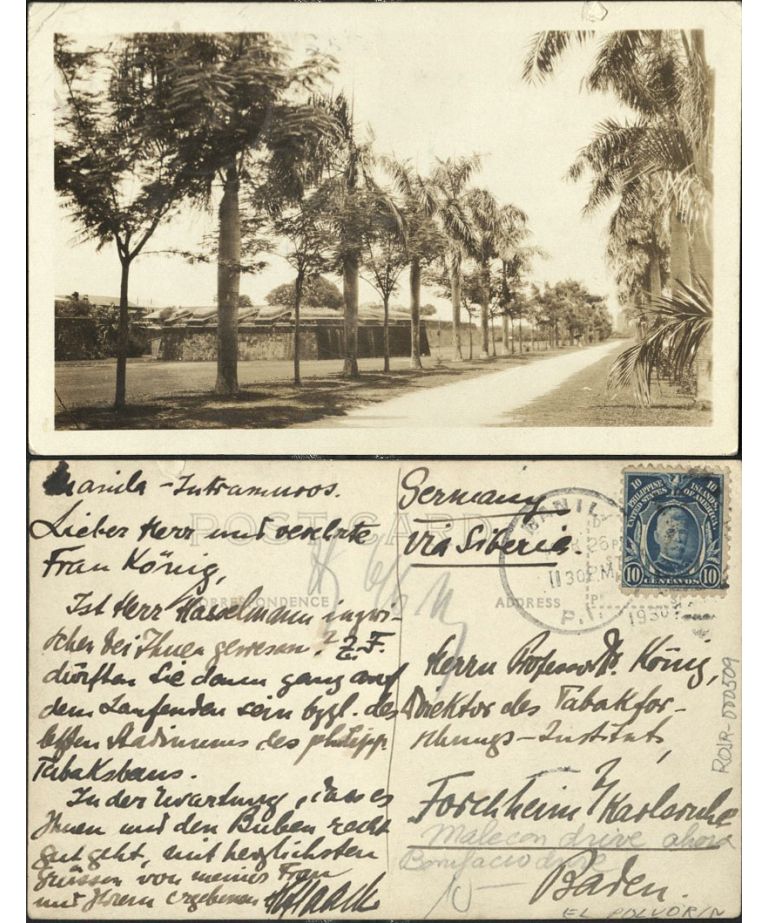 Manila - Intramuros.
Lieber Herr und verehrte
Frau König,
Ist Herr Hasselmann inzwi-
schen bei Ihnen gewesen? Z. F.
dürften Sie dann ganz auf
dem Laufenden sein bzgl. des
des philipp.
Tabakbaus.
In der Erwartung, dass es
Ihnen und den Buben recht
gut geht, mit herzlichsten
Grüssen von meiner Frau
und Ihrem ergebenen
POST CARD
CORRESPONDENCE
ADDRESS
Germany
via Siberia.
MANILA
1130 P.M
P.I.
1930
PHILIPPINE ISLANDS
UNITED STATES OF AMERICA
10 10
10 CENTAVOS 10
Herrn Professor Dr. König,
Direktor des Tabakfor-
schungs-Institut,
Forchheim b/Karlsruhe
Malecon drive ahora
Bonifacio drive
Baden.
EL POLVORIN
ROJR-000509